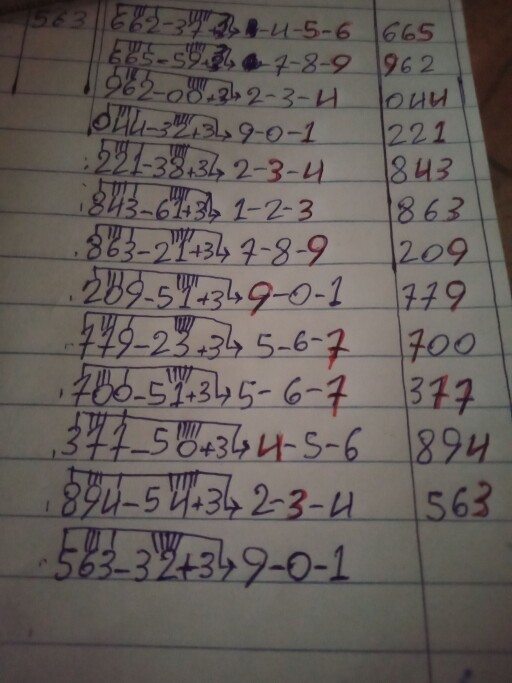 563 662-37+3→4-5-6 665
665-59+3→7-8-9 962
962-00+3→2-3-4 044
044-32+3→9-0-1 221
221-38+3→2-3-4 843
843-61+3→1-2-3 863
863-21+3→7-8-9 209
209-51+3→9-0-1 779
779-23+3→5-6-7 700
700-51+3→5-6-7 377
377-50+3→4-5-6 894
894-54+3→2-3-4 563
563-32+3→9-0-1